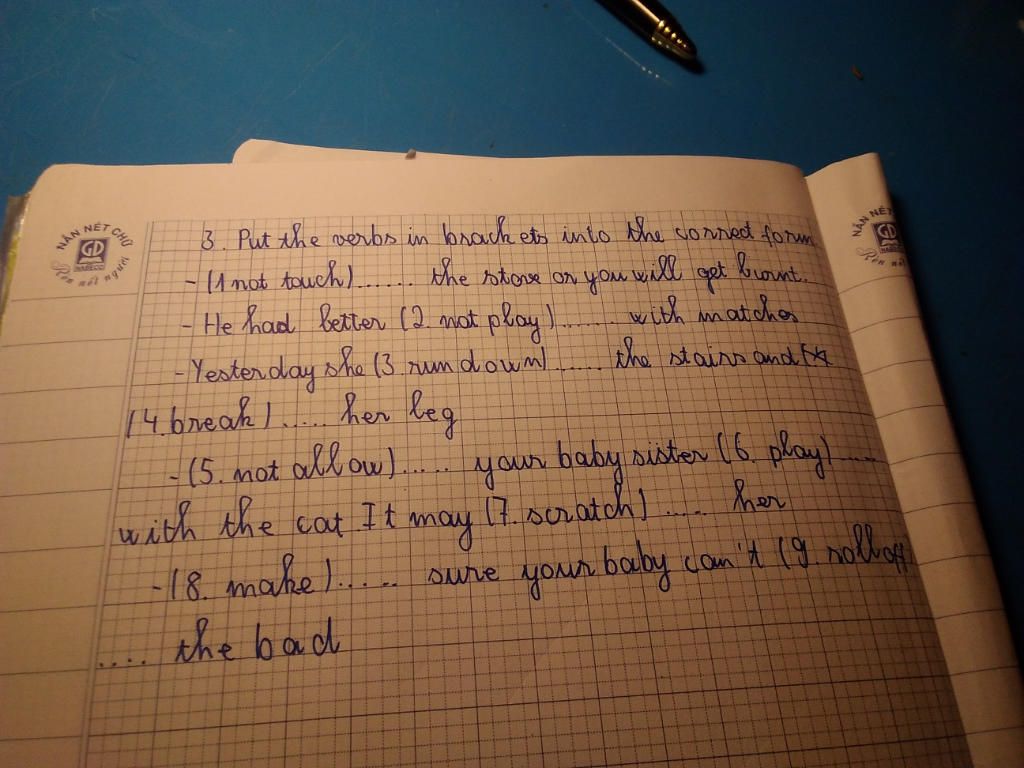 NẮN NÉT CHỮ
GD
Rèn nết người
NẮN NÉT
GD
Rèn nết
3. Put the verbs in brackets into the correct form
- (1 not touch) ...... the stove or you will get burnt.
- He had better (2. not play) ....... with matches
- Yesterday she (3. run down) ...... the stairs and (
(4. break) ..... her leg
- (5. not allow) ..... your baby sister (6. play) .....
with the cat It may (7. scratch) .... her
- (8. make) ..... sure your baby can't (9. roll off)
.... the bad